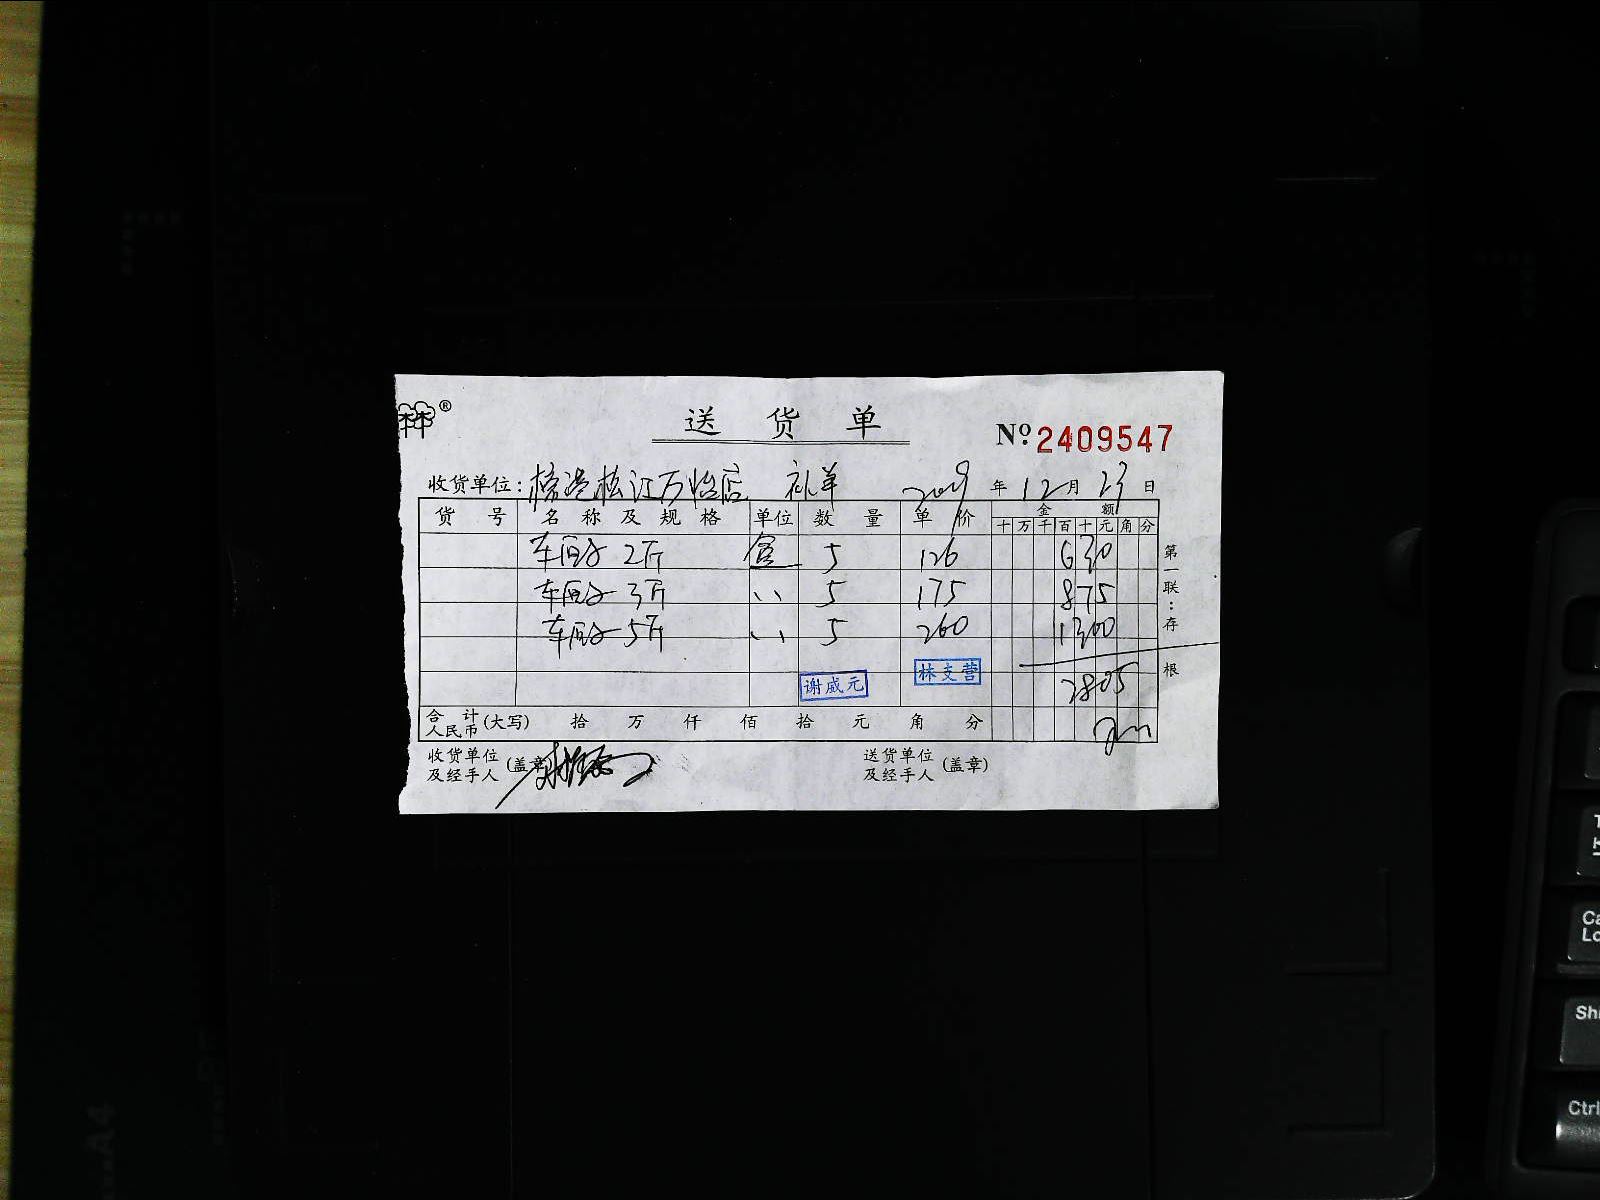 ®
送 货 单
Nº. 2409547
收货单位: 松江万怡店 补单 2019 年 12 月 23 日
货 号 名 称 及 规 格 单位 数 量 单 价 金 额
十 万 千 百 十 元 角 分
2斤 盒 5 126 630
3斤 〃 5 175 875
5斤 〃 5 260 1300
2805
谢威元 林支营
合 计 人民币 (大写) 拾 万 仟 佰 拾 元 角 分
收货单位及经手人 (盖章) 送货单位及经手人 (盖章)
第一联:存根
A4
Shi
Ctrl